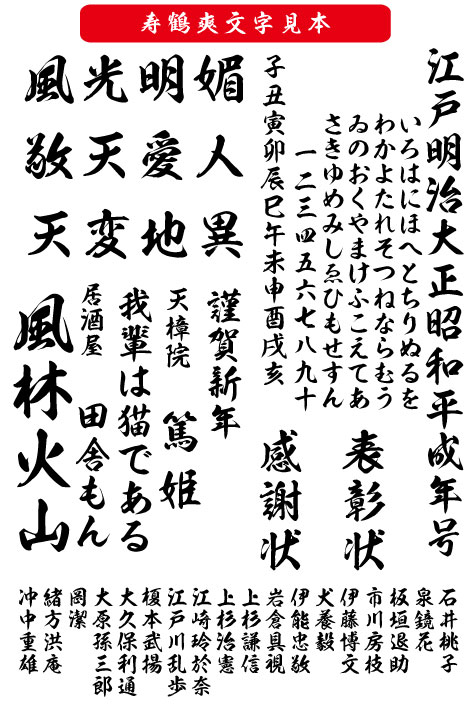 寿鶴爽文字見本
江戸明治大正昭和平成年号
いろはにほへとちりぬるを
わかよたれそつねならむう
ゐのおくやまけふこえてあ
さきゆめみしゑひもせすん
一二三四五六七八九十
子丑寅卯辰巳午未申酉戌亥
表彰状
感謝状
媚人異
明愛地
光天変
風敬天
謹賀新年
天樟院 篤姫
我輩は猫である
居酒屋 田舎もん
風林火山
石井桃子
泉鏡花
板垣退助
市川房枝
伊藤博文
犬養毅
伊能忠敬
岩倉具視
上杉謙信
上杉治憲
江崎玲於奈
江戸川乱歩
榎本武揚
大久保利通
大原孫三郎
岡潔
緒方洪庵
冲中重雄